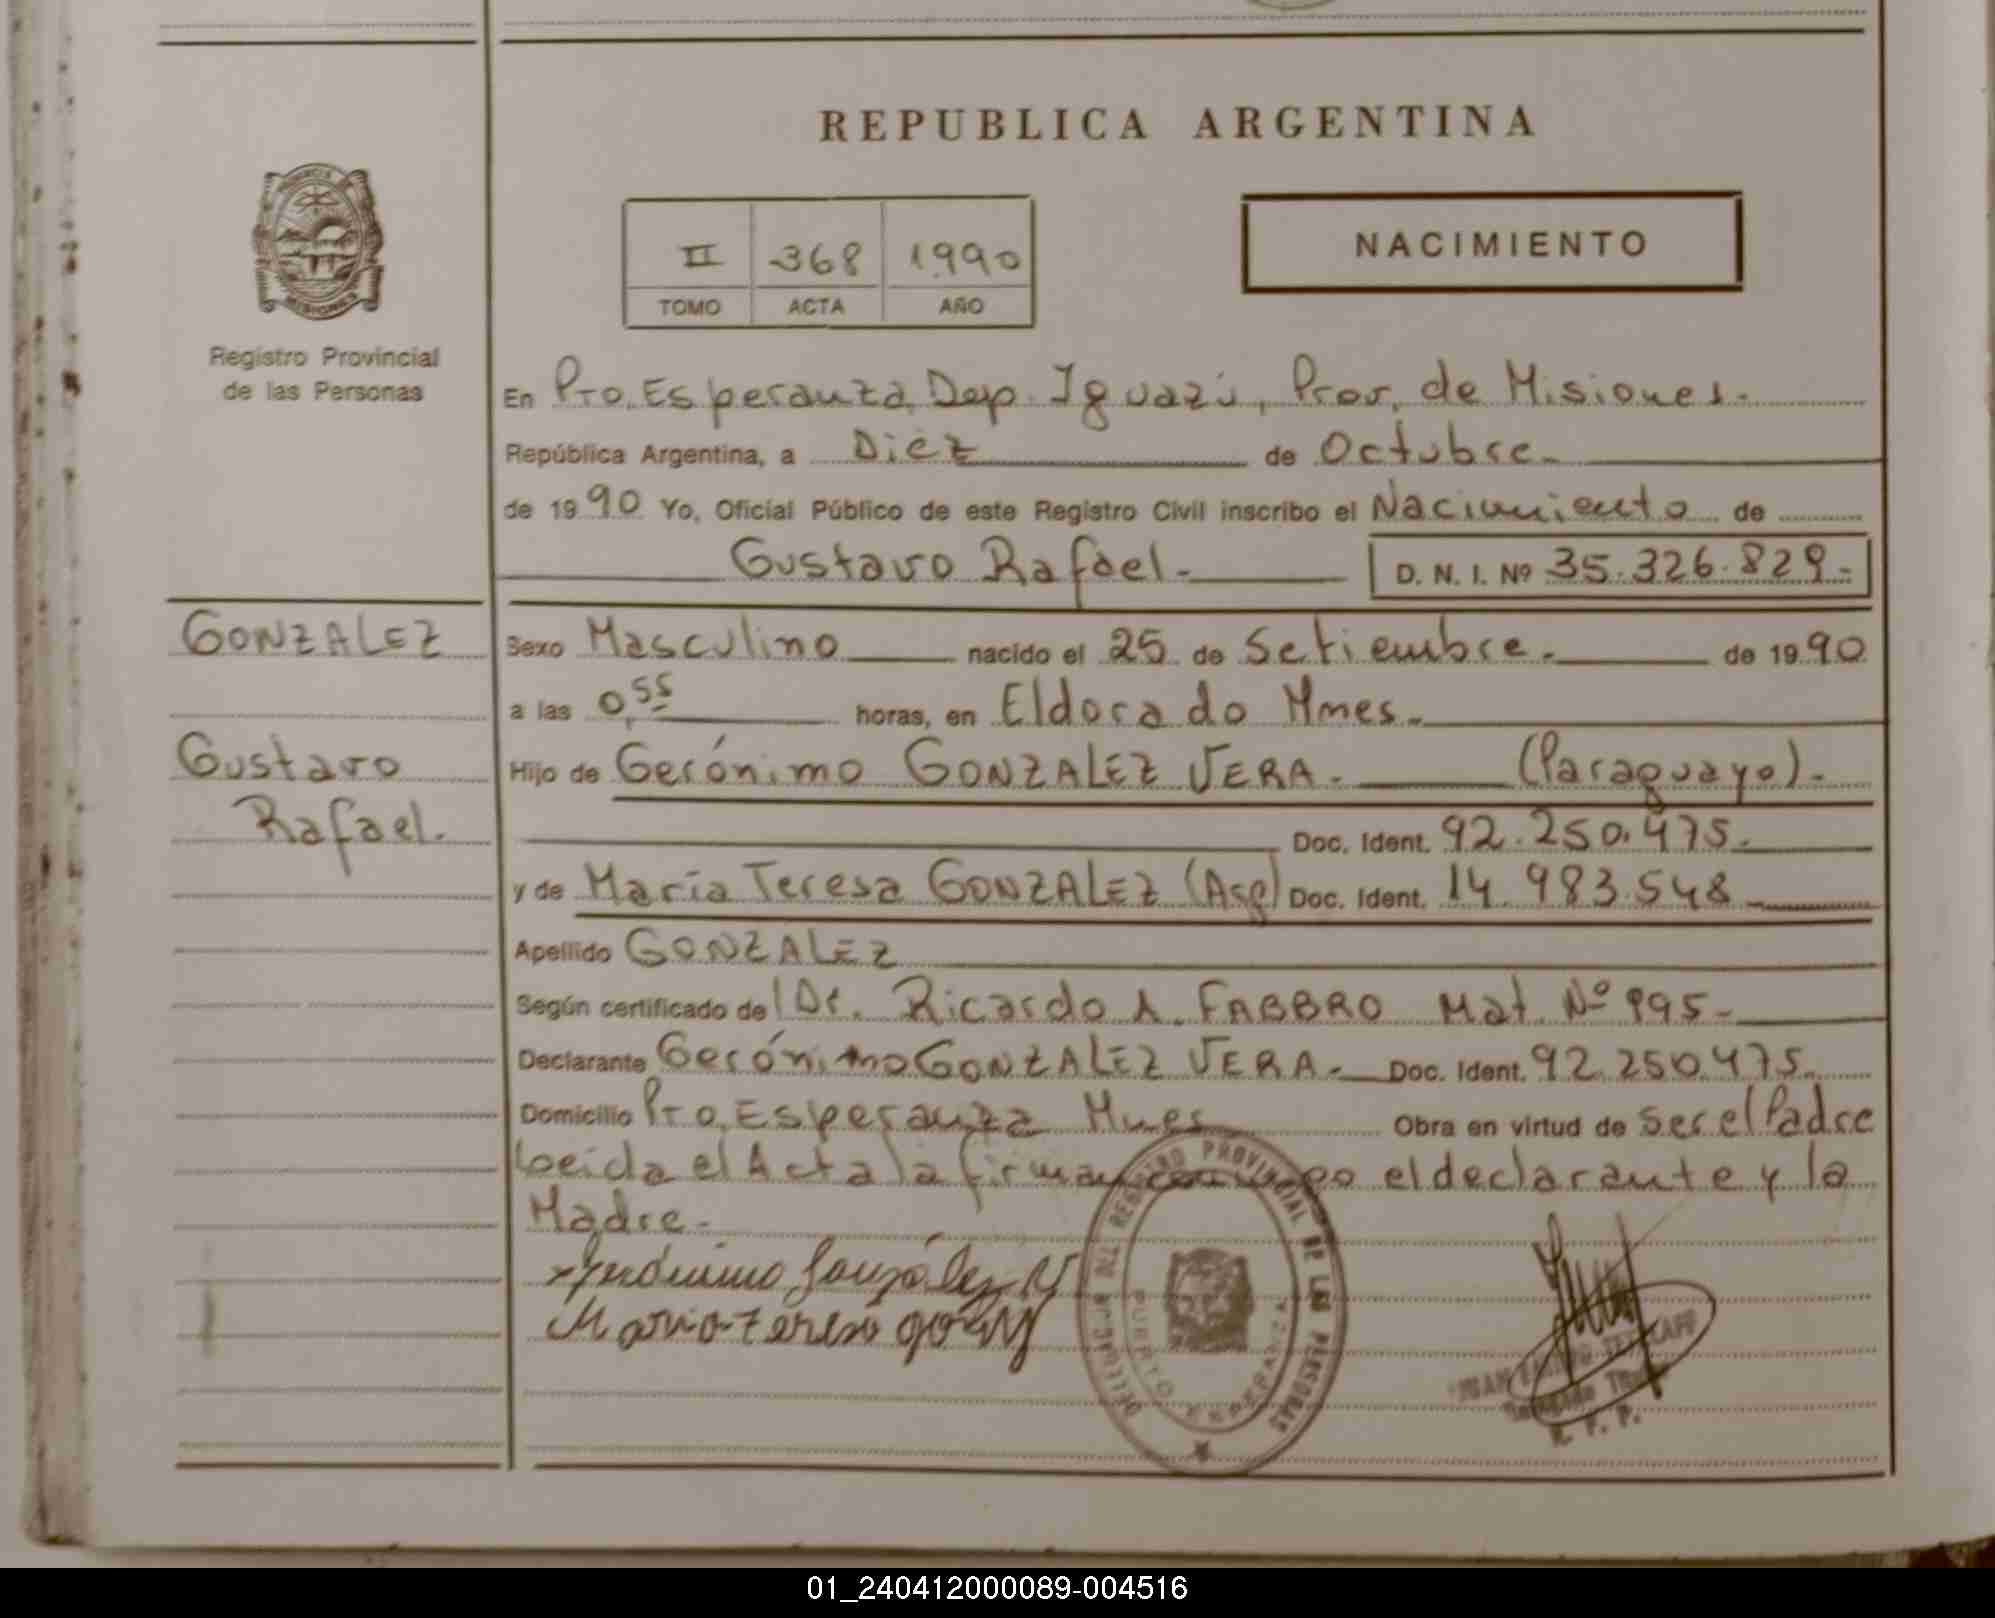 REPUBLICA ARGENTINA
II 368 1990
TOMO ACTA AÑO
NACIMIENTO
PROVINCIA DE
MISIONES
Registro Provincial
de las Personas
En Pto. Esperanza, Dep. Iguazú, Prov. de Misiones.
República Argentina, a Diez de Octubre.
de 1990 Yo, Oficial Público de este Registro Civil inscribo el Nacimiento de
Gustavo Rafael. D. N. I. Nº 35.326.829.
GONZALEZ
Gustavo
Rafael.
Sexo Masculino nacido el 25 de Setiembre. de 1990
a las 0,55 horas, en Eldorado Mnes.
Hijo de Gerónimo GONZALEZ VERA. (Paraguayo).
Doc. Ident. 92.250.475.
y de María Teresa GONZALEZ (Arg) Doc. Ident. 14.983.548
Apellido GONZALEZ
Según certificado del Dr. Ricardo A. FABBRO Mat. Nº 995.
Declarante Gerónimo GONZALEZ VERA. Doc. Ident. 92.250.475.
Domicilio Pto. Esperanza Mnes Obra en virtud de ser el Padre
Leída el Acta la firman conmigo el declarante y la
Madre.
Gerónimo González V
Maria teresa
DELEGACION DEL REGISTRO PROVINCIAL DE LAS PERSONAS
PUERTO ESPERANZA
JUAN
R. P. P.
01_240412000089-004516